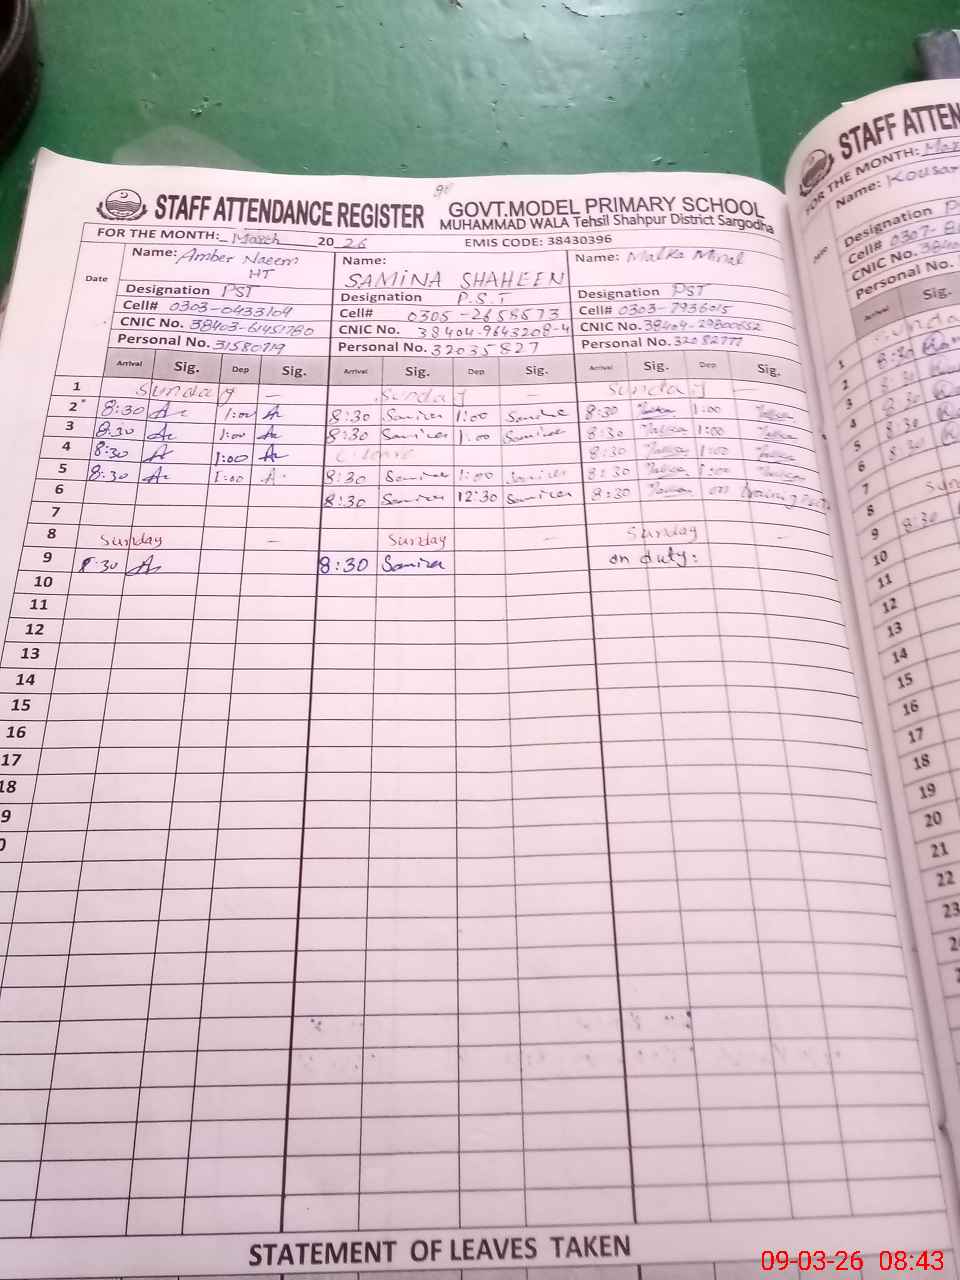 90
STAFF ATTENDANCE REGISTER GOVT.MODEL PRIMARY SCHOOL
MUHAMMAD WALA Tehsil Shahpur District Sargodha
FOR THE MONTH: March 2026 EMIS CODE: 38430396
Date
Name: Amber Naeem Name: Name: Malka Minal
HT SAMINA SHAHEEN
Designation PST Designation P.S.T Designation PST
Cell# 0303-0433104 Cell# 0305-2658573 Cell# 0303-7936015
CNIC No. 38403-61451780 CNIC No. 38404-9643208-4 CNIC No. 38404-29800652
Personal No. 31580719 Personal No. 32035827 Personal No. 32082777
Arrival Sig. Dep Sig. Arrival Sig. Dep Sig. Arrival Sig. Dep Sig.
1 Sunday — Sunday — Sunday —
2 8:30 1:00 8:30 Samina 1:00 Samina 8:30 Malka 1:00 Malka
3 8:30 1:00 8:30 Samina 1:00 Samina 8:30 Malka 1:00 Malka
4 8:30 1:00 C leave 8:30 Malka 1:00 Malka
5 8:30 1:00 8:30 Samina 1:00 Samina 8:30 Malka 1:00 Malka
6 8:30 Samina 12:30 Samina 8:30 Malka on training
7
8 Sunday — Sunday — Sunday —
9 8:30 8:30 Samina on duty:
10
11
12
13
14
15
16
17
18
9
0
STATEMENT OF LEAVES TAKEN
STAFF ATTEN
FOR THE MONTH: Mar
Name: Kousar
Designation P
Cell# 0307-8
CNIC No. 3840
Personal No.
Arrival Sig.
1 Sunda
2 8:30
3 8:30
4 8:30
5 8:30
6 8:30
7
8 Sun
9 8:30
10
11
12
13
14
15
16
17
18
19
20
21
22
23
09-03-26 08:43